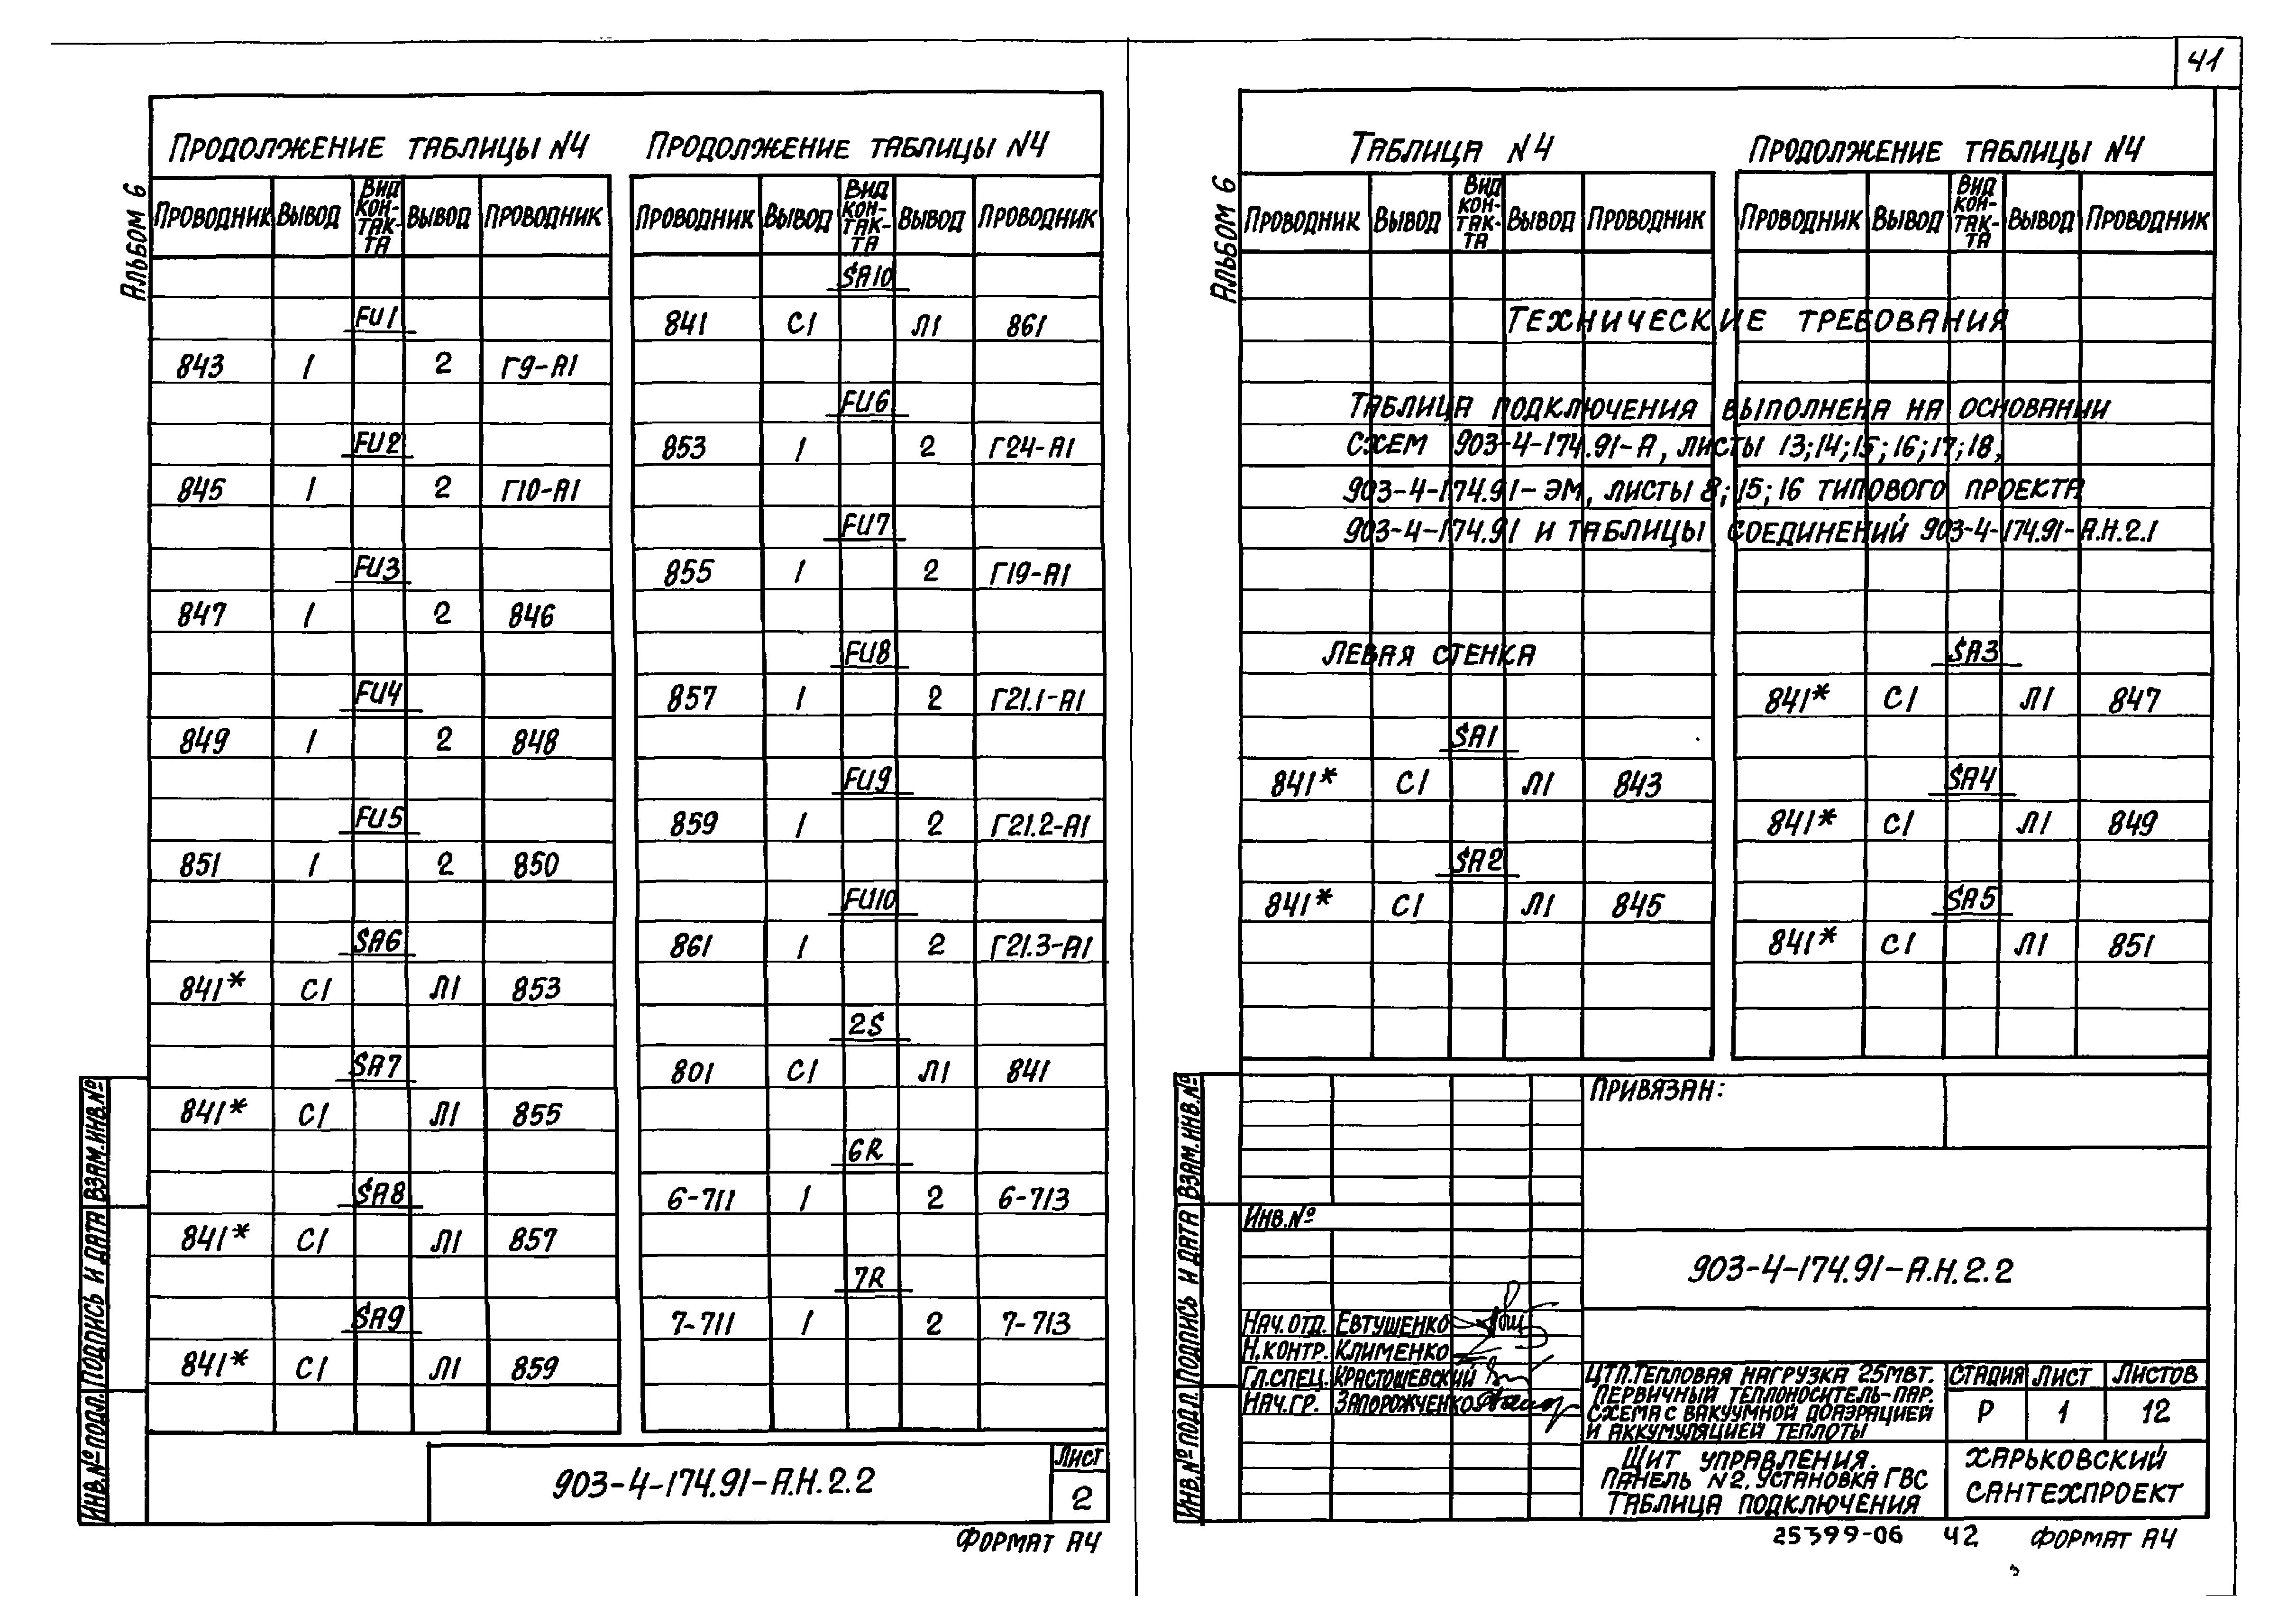 41
Альбом 6
Продолжение таблицы N4
Проводник Вывод Вид контакта Вывод Проводник
FU1
843 1 2 Г9-А1
FU2
845 1 2 Г10-А1
FU3
847 1 2 846
FU4
849 1 2 848
FU5
851 1 2 850
SA6
841* С1 Л1 853
SA7
841* С1 Л1 855
SA8
841* С1 Л1 857
SA9
841* С1 Л1 859
Продолжение таблицы N4
Проводник Вывод Вид контакта Вывод Проводник
SA10
841 С1 Л1 861
FU6
853 1 2 Г24-А1
FU7
855 1 2 Г19-А1
FU8
857 1 2 Г21.1-А1
FU9
859 1 2 Г21.2-А1
FU10
861 1 2 Г21.3-А1
2S
801 С1 Л1 841
6R
6-711 1 2 6-713
7R
7-711 1 2 7-713
Инв.№ подл. Подпись и дата Взам.инв.№
903-4-174.91-А.Н.2.2
Лист
2
Формат А4
Альбом 6
Таблица N4
Продолжение таблицы N4
Проводник Вывод Вид контакта Вывод Проводник
Проводник Вывод Вид контакта Вывод Проводник
Технические требования
Таблица подключения выполнена на основании
схем 903-4-174.91-А, листы 13;14;15;16;17;18,
903-4-174.91-ЭМ, листы 8;15;16 типового проекта
903-4-174.91 и таблицы соединений 903-4-174.91-А.Н.2.1
Левая стенка
SA1
841* С1 Л1 843
SA2
841* С1 Л1 845
SA3
841* С1 Л1 847
SA4
841* С1 Л1 849
SA5
841* С1 Л1 851
Инв.№ подл. Подпись и дата Взам.инв.№
Привязан:
Инв.№
903-4-174.91-А.Н.2.2
Нач.отд. Евтушенко
Н.контр. Клименко
Гл.спец. Крастошевский
Нач.гр. Запорожченко
ЦТП.Тепловая нагрузка 25МВт.
Первичный теплоноситель-пар.
Схема с вакуумной доаэрацией
и аккумуляцией теплоты
Стадия Лист Листов
Р 1 12
Щит управления.
Панель N2. Установка ГВС
Таблица подключения
Харьковский
Сантехпроект
25399-06 42 Формат А4